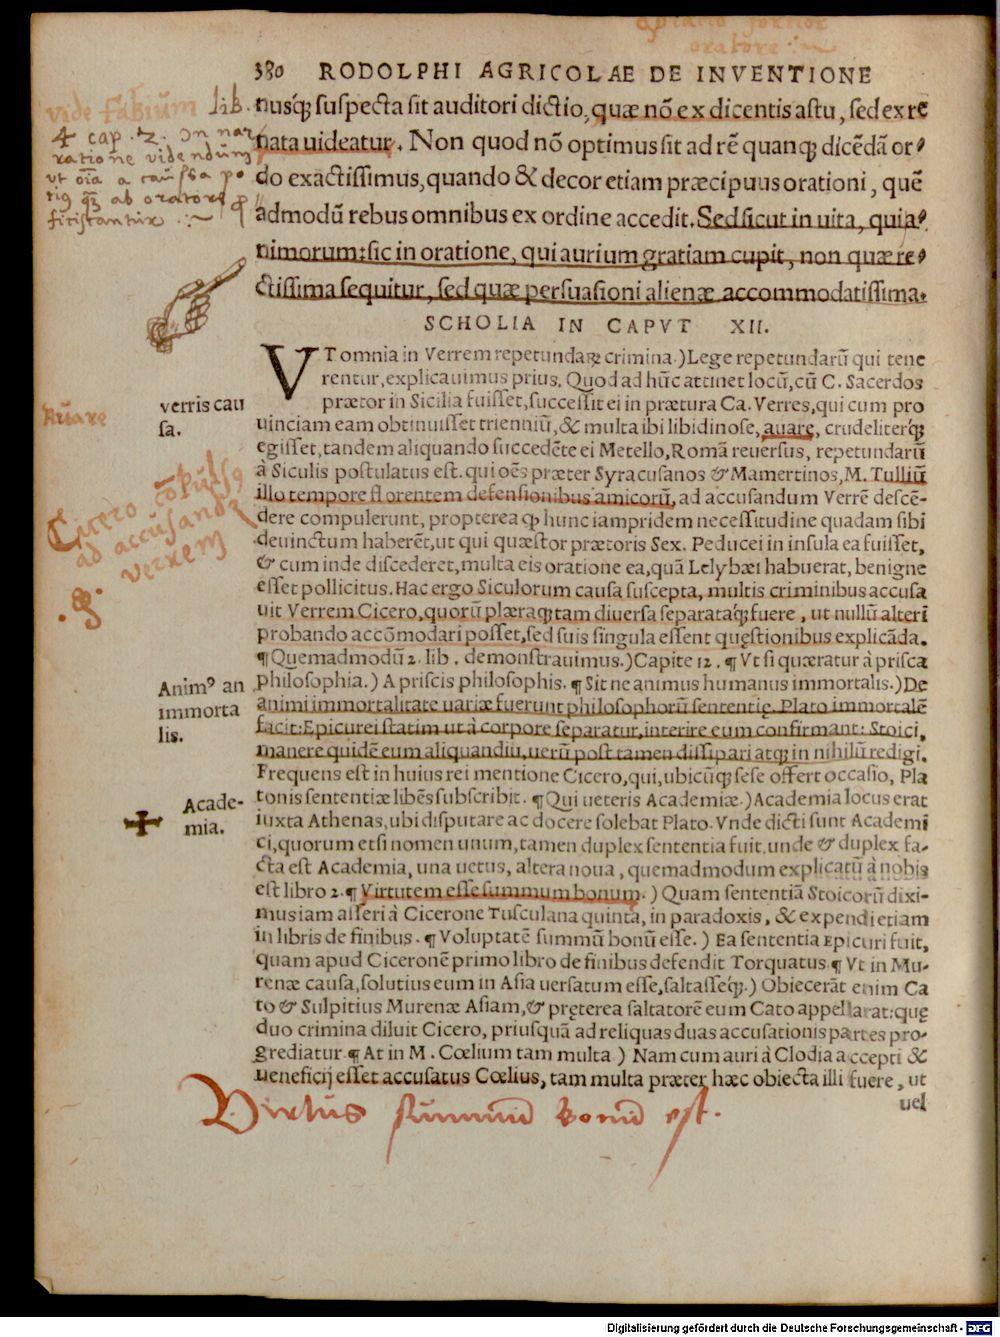 oratore
380 RODOLPHI AGRICOLAE DE INVENTIONE
nusq́; suspecta sit auditori dictio, quæ nō ex dicentis astu, sed ex re
nata uideatur. Non quod nō optimus sit ad rē quanq; dicēdā or⸗
do exactissimus, quando & decor etiam præcipuus orationi, quē
admodū rebus omnibus ex ordine accedit. Sed sicut in uita, qui a⸗
nimorum: sic in oratione, qui aurium gratiam cupit, non quæ re⸗
ctissima sequitur, sed quæ persuasioni alienæ accommodatissima.
vide Fabium lib.
4 cap. 2. In nar
ratione videndum
ut oīa a caussa po
tiꝰ q̄ ab oratore
SCHOLIA IN CAPVT XII.
VT omnia in Verrem repetundaꝝ crimina.) Lege repetundarū qui tene
rentur, explicauimus prius. Quod ad hūc attinet locū, cū C. Sacerdos
prætor in Sicilia fuisset, successit ei in prætura Ca. Verres, qui cum pro
uinciam eam obtinuisset trienniū, & multa ibi libidinose, auarę, crudeliterq́;
egisset, tandem aliquando succedēte ei Metello, Romā reuersus, repetundarū
à Siculis postulatus est. qui oēs præter Syracusanos & Mamertinos, M. Tulliū
illo tempore florentem defensionibus amicorū, ad accusandum Verrē descē⸗
dere compulerunt, propterea ꝙ hunc iampridem necessitudine quadam sibi
deuinctum haberēt, ut qui quæstor prætoris Sex. Peducei in insula ea fuisset,
& cum inde discederet, multa eis oratione ea, quā Lelybæi habuerat, benigne
esset pollicitus. Hac ergo Siculorum causa suscepta, multis criminibus accusa
uit Verrem Cicero, quorū plæraq; tam diuersa separataq́; fuere, ut nullū alteri
probando accōmodari posset, sed suis singula essent quęstionibus explicāda.
¶ Quemadmodū 2. lib. demonstrauimus.) Capite 12. ¶ Vt si quæratur à prisca
philosophia.) A priscis philosophis. ¶ Sit ne animus humanus immortalis.) De
animi immortalitate uariæ fuerunt philosophorū sententię. Plato immortalē
facit: Epicurei statim ut à corpore separatur, interire eum confirmant: Stoici,
manere quidē eum aliquandiu, uerū post tamen dissipari atq; in nihilū redigi.
Frequens est in huius rei mentione Cicero, qui, ubicūq; sese offert occasio, Pla
tonis sententiæ libēs subscribit. ¶ Qui ueteris Academiæ.) Academia locus erat
iuxta Athenas, ubi disputare ac docere solebat Plato. Vnde dicti sunt Academi
ci, quorum etsi nomen unum, tamen duplex sententia fuit. unde & duplex fa⸗
cta est Academia, una uetus, altera noua, quemadmodum explicatū à nobis
est libro 2. ¶ Virtutem esse summum bonum.) Quam sententiā Stoicorū dixi⸗
mus iam asseri à Cicerone Tusculana quinta, in paradoxis, & expendi etiam
in libris de finibus. ¶ Voluptatē summū bonū esse.) Ea sententia Epicuri fuit,
quam apud Ciceronē primo libro de finibus defendit Torquatus. ¶ Vt in Mu⸗
renæ causa, solutius eum in Asia uersatum esse, saltasseq́;.) Obiecerāt enim Ca
to & Sulpitius Murenæ Asiam, & pręterea saltatorē eum Cato appellarat: quę
duo crimina diluit Cicero, priusquā ad reliquas duas accusationis partes pro⸗
grediatur. ¶ At in M. Cœlium tam multa.) Nam cum auri à Clodia accepti &
ueneficij esset accusatus Cœlius, tam multa præter hæc obiecta illi fuere, ut
uel
verris cau
sa.
Auare
Cicero cōpulsꝰ
ad accusandū
verrem
Animꝰ an
immorta
lis.
Acade⸗
mia.
Virtus summū bonū est.
Digitalisierung gefördert durch die Deutsche Forschungsgemeinschaft - DFG